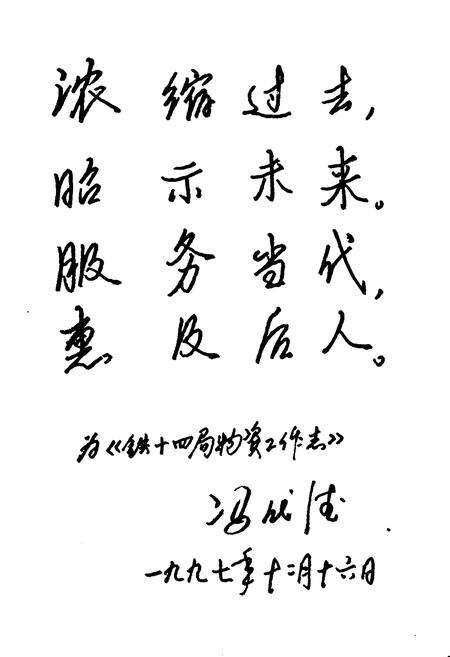 浓缩过去,
昭示未来。
服务当代,
惠及后人。
为《铁十四局物资工作志》
冯
一九九七年十二月十六日